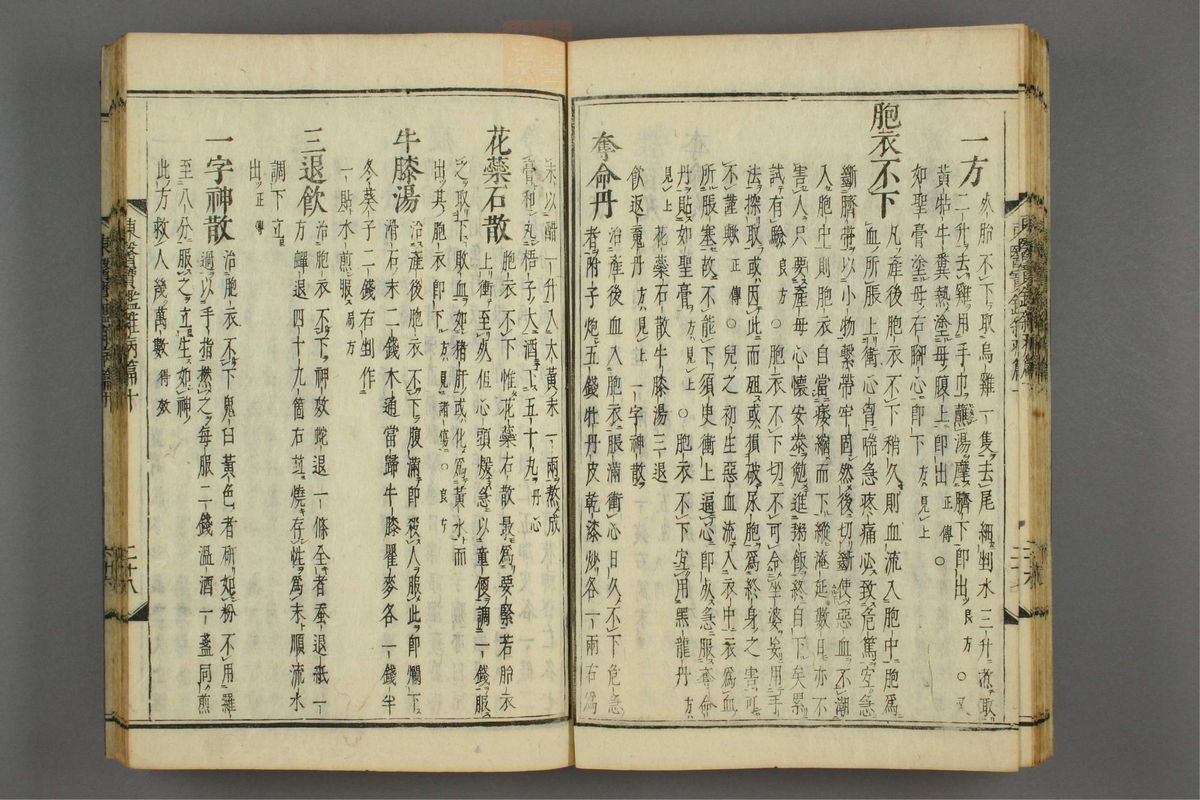 一方 死胎不下取烏雞一隻去尾細剉水三升煮取
二升去雞用手巾蘸湯摩臍下即出良方○又
黃牯牛糞熱塗母腹上即出正傳○
如聖膏塗母右脚心即下方見上
胞衣不下 凡產後胞衣不下稍久則血流入胞中胞爲
血所脹上衝心胷喘急疼痛必致危篤宜急
斷臍帶以小物繫帶牢固然後切斷使惡血不潮
入胞中則胞衣自當痿縮而下縱淹延數日亦不
害人只要產母心懷安泰勉進粥飯終自下矣累
試有驗良方○胞衣不下切不可令坐婆妄用手
法探取或因此而殂或損破尿胞爲終身之害可
不謹歟正傳○兒之初生惡血流入衣中衣爲血
所脹塞故不能下須臾衝上逼心即死急服奪命
丹貼如聖膏方見上○胞衣不下宜用黑龍丹方
見上花藥石散牛膝湯三退
飲返魂丹方見上一字神散
奪命丹 治產後血入胞衣脹滿衝心日久不下危急
者附子炮五錢牡丹皮乾漆炒各一兩右爲
末以醋一升入大黃末一兩熬成
膏和丸梧子大酒下五十丸丹心
花藥石散 胞衣不下惟花藥石散最爲要緊若胎衣
上衝至死但心頭煖急以童便調一錢服
之取下敗血如猪肝或化爲黃水而
出其胞衣即下方見諸傷○良方
牛膝湯 治產後胞衣不下腹滿即殺人服此即爛下
滑石末二錢木通當歸牛膝瞿麥各一錢半
冬葵子二錢右剉作
一貼水煎服局方
三退飲 治胞衣不下神效蛇退一條全者蚕退紙一
方蟬退四十九箇右並燒存性爲末順流水
調下立
出正傳
一字神散 治胞衣不下鬼臼黃色者硏如粉不用羅
過以手指撚之每服二錢溫酒一盞同煎
至八分服之立生如神
此方救人幾萬數得效
東醫寶鑑雜病篇十
二十八